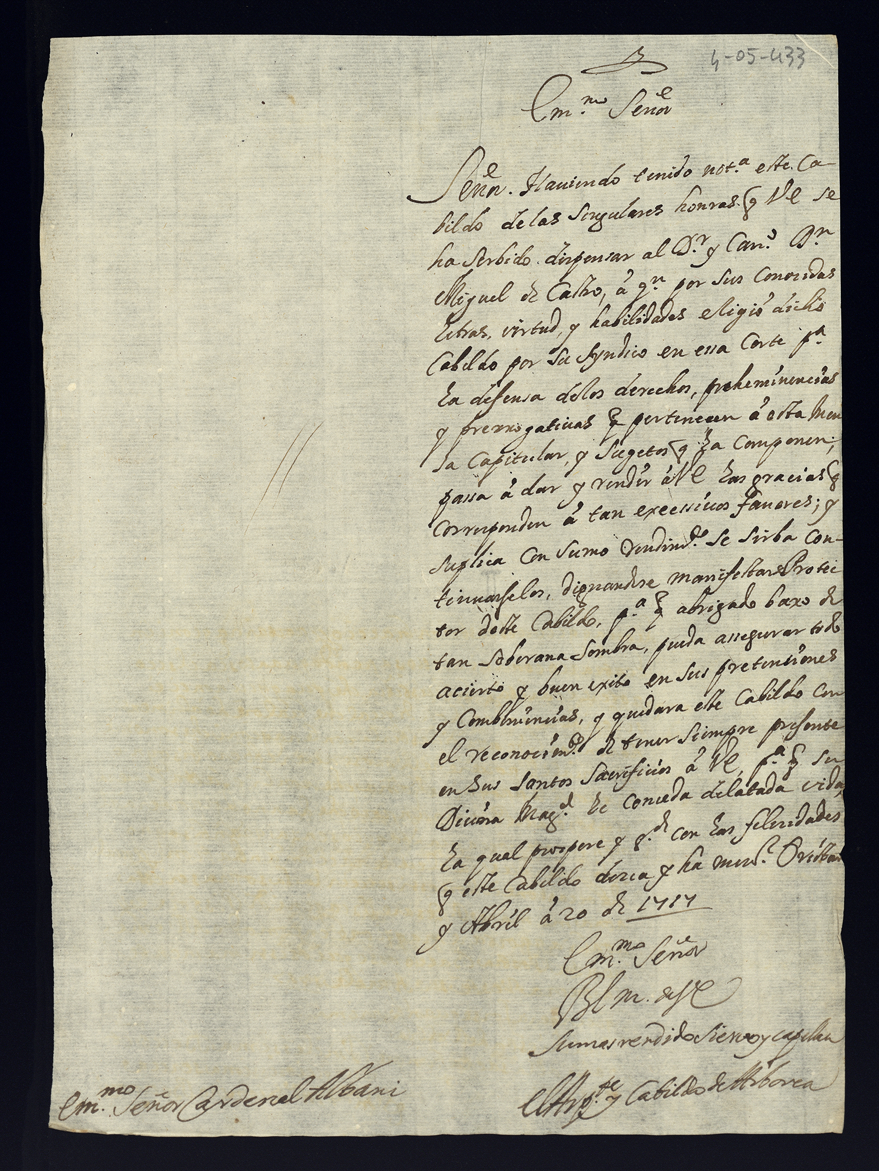 4-05-433
Em.mo Señor
Señor. Hauiendo tenido not.a este Ca-
bildo de las singulares honras q VE se
ha serbido dispensar al D.r y Can.o D.n
Miguel de Castro, â q.n por sus conosidas
letras, virtud, y habilidades eligió dicho
Cabildo por su syndico en essa Corte p.a
la defensa delos derechos, preheminencias
y prerrogatiuas q pertenecen â esta Men
sa Capitular, y sugetos q la componen;
passa â dar y rendir â VE las gracias q
corresponden â tan excessiuos fauores; y
suplica con sumo rendim.to se sirba con-
tinuarselos, dignandose manifestarse Protec
tor deste Cabildo, p.a q abrigado baxo de
tan soberana sombra, pueda assegurar todo
acierto y buen exito en sus pretenciones
y combeniencias, y quedara este Cabildo con
el reconocim.to de tener siempre presente
en sus santos sacrificios â VE, p.a q su
Diuina Mag.d le conceda dilatada vida,
la qual prospere y g.de con las felicidades
q este Cabildo decea y ha men.r Oristan
y Abril â 20 de 1717
Em.mo Señor
BLM. de VE
su mas rendido sieruo y capellan
El Arp.te y Cabildo de Arborea
Em.mo Señor Cardenal Albani